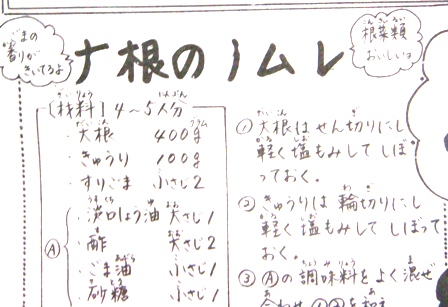 ごまの
香りが
きいてるよ
大根のナムル
根菜類
おいしいよ
〔材料〕4～5人分
・大根 400g
・きゅうり 100g
・すりごま 小さじ2
Ⓐ
淡口しょう油 大さじ1
・酢 大さじ2
・ごま油 小さじ1
・砂糖 小さじ1
① 大根はせん切りにし
軽く塩もみしてしぼ
っておく。
② きゅうりは輪切りにし
軽く塩もみしてしぼって
おく。
③ Ⓐの調味料をよく混ぜ
合わせ